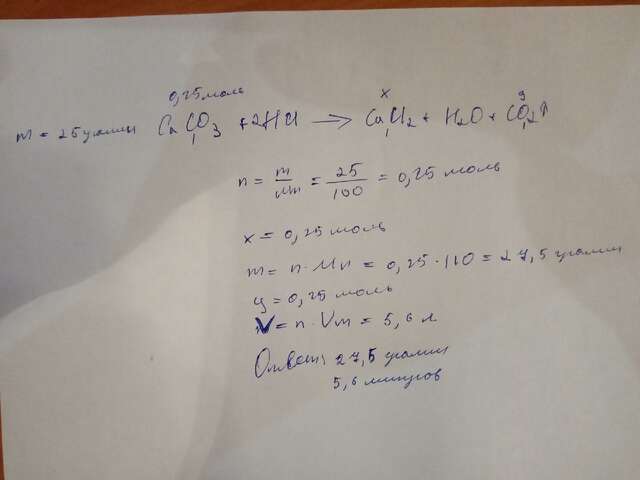 0,25 моль x y
m = 25 грамм CaCO3 + 2HCl → CaCl2 + H2O + CO2↑
1 1 1
n = m/Mn = 25/100 = 0,25 моль
x = 0,25 моль
m = n · Mn = 0,25 · 110 = 27,5 грамм
y = 0,25 моль
V = n · Vm = 5,6 л
Ответ: 27,5 грамм
5,6 литров